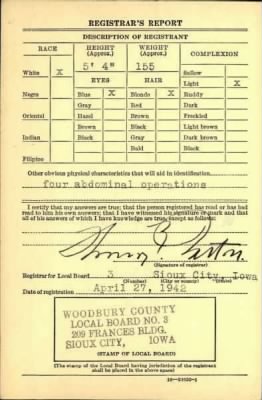 REGISTRAR'S REPORT
DESCRIPTION OF REGISTRANT
RACE HEIGHT (Approx.) WEIGHT (Approx.) COMPLEXION
5' 4" 155
White X Sallow
EYES HAIR Light X
Negro Blue X Blonde X Ruddy
Gray Red Dark
Oriental Hazel Brown Freckled
Brown Black Light brown
Indian Black Gray Dark brown
Bald Black
Filipino
Other obvious physical characteristics that will aid in identification
four abdominal operations
I certify that my answers are true; that the person registered has read or has had
read to him his own answers; that I have witnessed his signature or mark and that
all of his answers of which I have knowledge are true, except as follows:
(Signature of registrar)
Registrar for Local Board 3 Sioux City, Iowa
(Number) (City or county) (State)
Date of registration April 27, 1942
WOODBURY COUNTY
LOCAL BOARD NO. 3
209 FRANCES BLDG.
SIOUX CITY, IOWA
(STAMP OF LOCAL BOARD)
(The stamp of the Local Board having jurisdiction of the registrant
shall be placed in the above space)